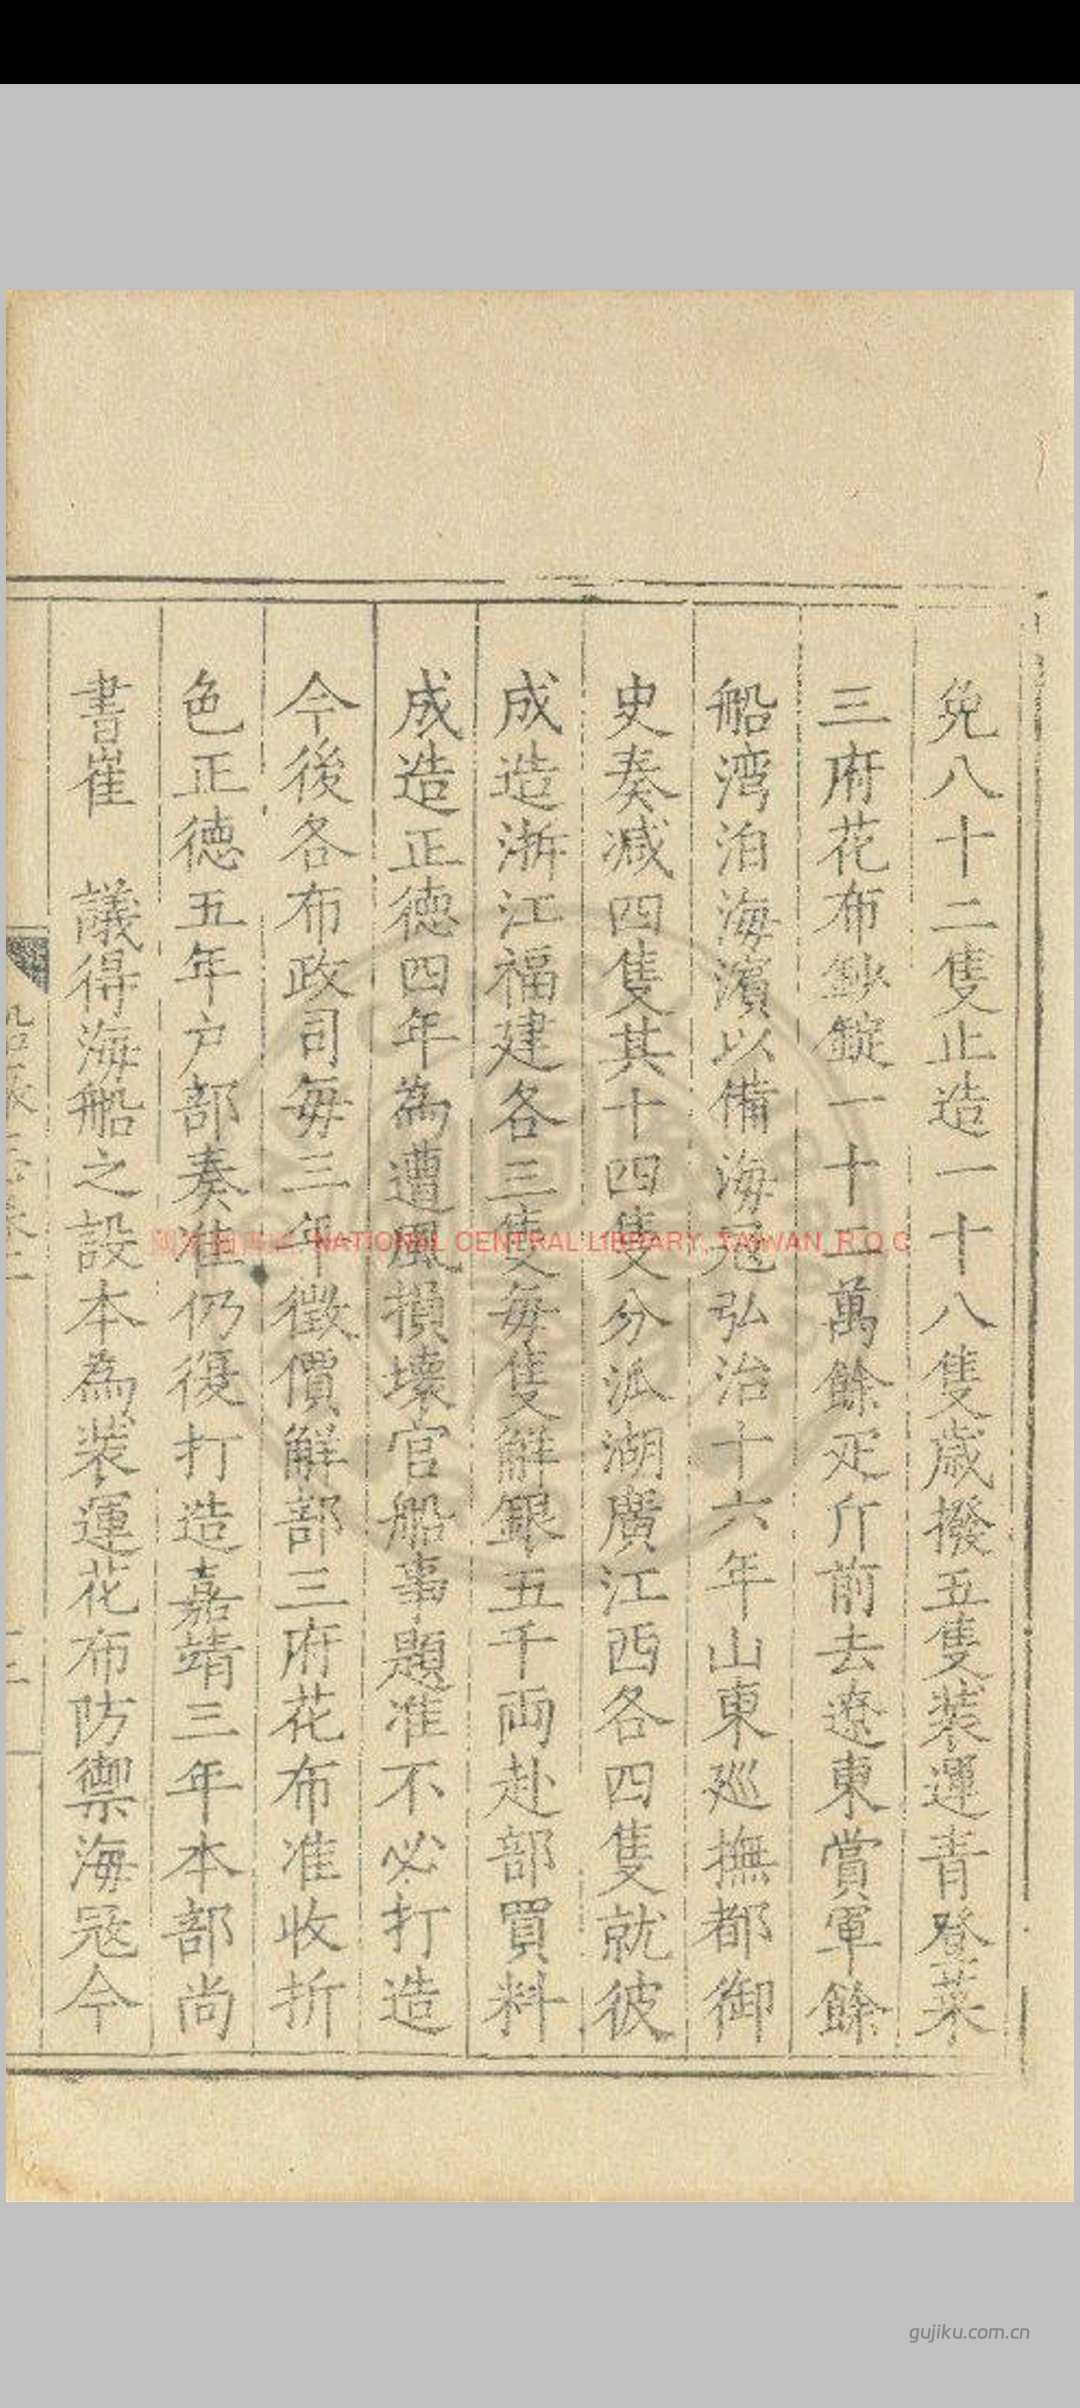 免八十二隻止造一十八隻歲撥五隻裝運青登萊
三府花布鈔錠一十二萬餘疋斤前去遼東賞軍餘
船湾泊海濱以備海冦弘治十六年山東廵撫都御
史奏減四隻其十四隻分派湖廣江西各四隻就彼
成造浙江福建各三隻每隻觧銀五千両赴部買料
成造正德四年為遭風損壞官船事題准不必打造
今後各布政司每三年徵價觧部三府花布准收折
色正德五年户部奏准仍復打造嘉靖三年本部尚
書崔　議得海船之設本為裝運花布防禦海冦今
NATIONAL CENTRAL LIBRARY, TAIWAN, R.O.C
gujiku.com.cn